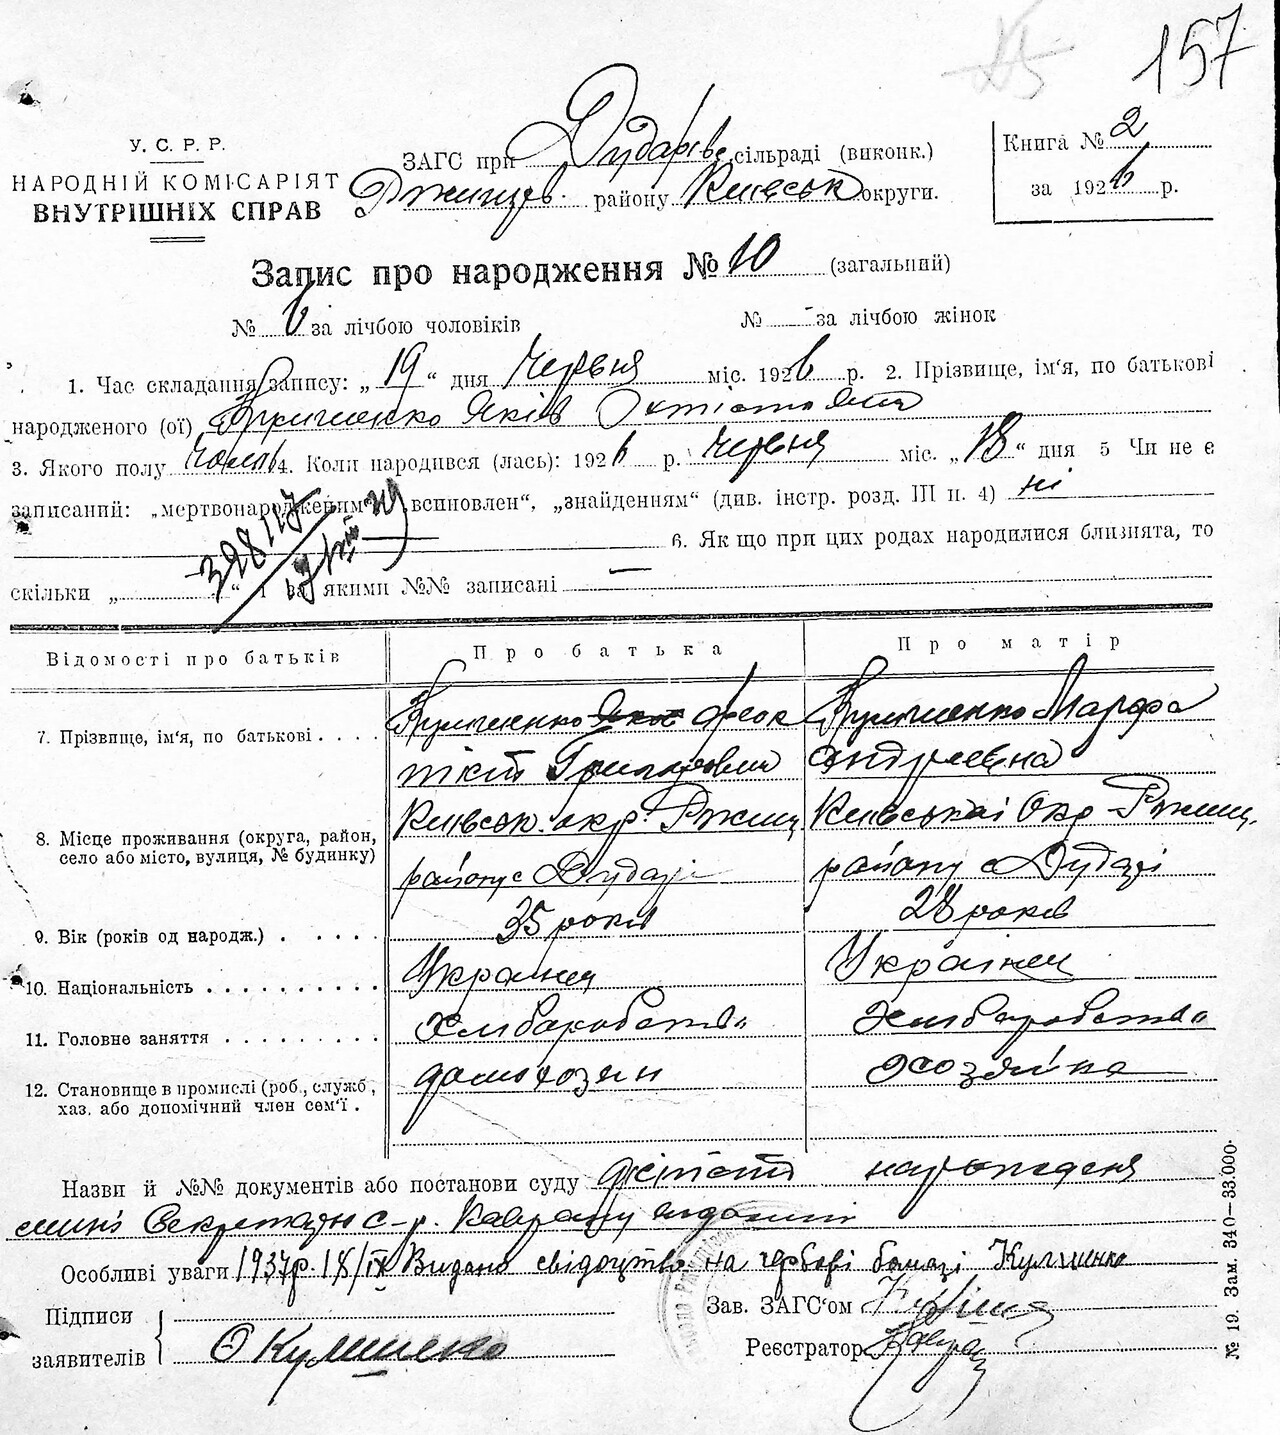 157
У. С. Р. Р.
НАРОДНІЙ КОМІСАРІЯТ
ВНУТРІШНІХ СПРАВ
ЗАГС при Дударів сільраді (виконк.)
Ржищев. району Київськ округи.
Книга № 2
за 1926 р.
Запис про народження № 10 (загальний)
№ 6 за лічбою чоловіків № - за лічбою жінок
1. Час складання запису: „19“ дня Червня міс. 1926 р. 2. Прізвище, ім'я, по батькові
народженого (ої) Кулішенко Яків
3. Якого полу чолов 4. Коли народився (лась): 1926 р. Червня міс. „18“ дня 5 Чи не є
записаний: „мертвонародженим“, „всиновлен“, „знайденням“ (див. інстр. розд. III п. 4) ні
6. Як що при цих родах народилися близнята, то
скільки „ “ і за якими №№ записані —
Відомості про батьків
Про батька
Про матір
7. Прізвище, ім'я, по батькові . . . .
Кулішенко Феок
тіст Григорович
Кулішенко Марфа
Андреєвна
8. Місце проживання (округа, район,
село або місто, вулиця, № будинку)
Київськ. окр. Ржищ
району с Дударі
Київської Окр Ржищ.
району с Дударі
9. Вік (років од народж.) . . . . .
35 років
28 років
10. Національність . . . . . . . . . .
Українец
Українец
11. Головне заняття . . . . . . . . .
Хліборобство
Хліборобство
12. Становище в промислі (роб., служб,
хаз. або допомічний член сем'ї .
домохозяін
хозяйка
Назви й №№ документів або постанови суду
Особливі уваги 1937р. 18/IX Видано свідоцтво на гербові бомазі Кулішенко
Підписи
заявителів
О Кулішенко
Зав. ЗАГС'ом
Реєстратор
№ 19. Зам. 340—33.000.